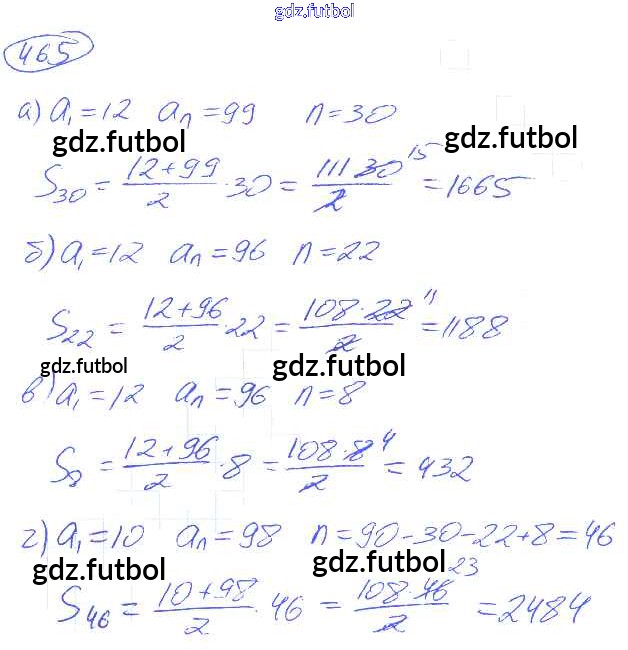 gdz.futbol
465
а) a₁=12 aₙ=99 n=30
gdz.futbol gdz.futbol
S₃₀ = (12+99)/2 · 30 = (111 30 15)/2 = 1665
б) a₁=12 aₙ=96 n=22
S₂₂ = (12+96)/2 · 22 = (108·22 11)/2 = 1188
gdz.futbol gdz.futbol
в) a₁=12 aₙ=96 n=8
S₈ = (12+96)/2 · 8 = (108·8 4)/2 = 432
г) a₁=10 aₙ=98 n=90-30-22+8=46
gdz.futbol gdz.futbol
S₄₆ = (10+98)/2 · 46 = (108·46 23)/2 = 2484